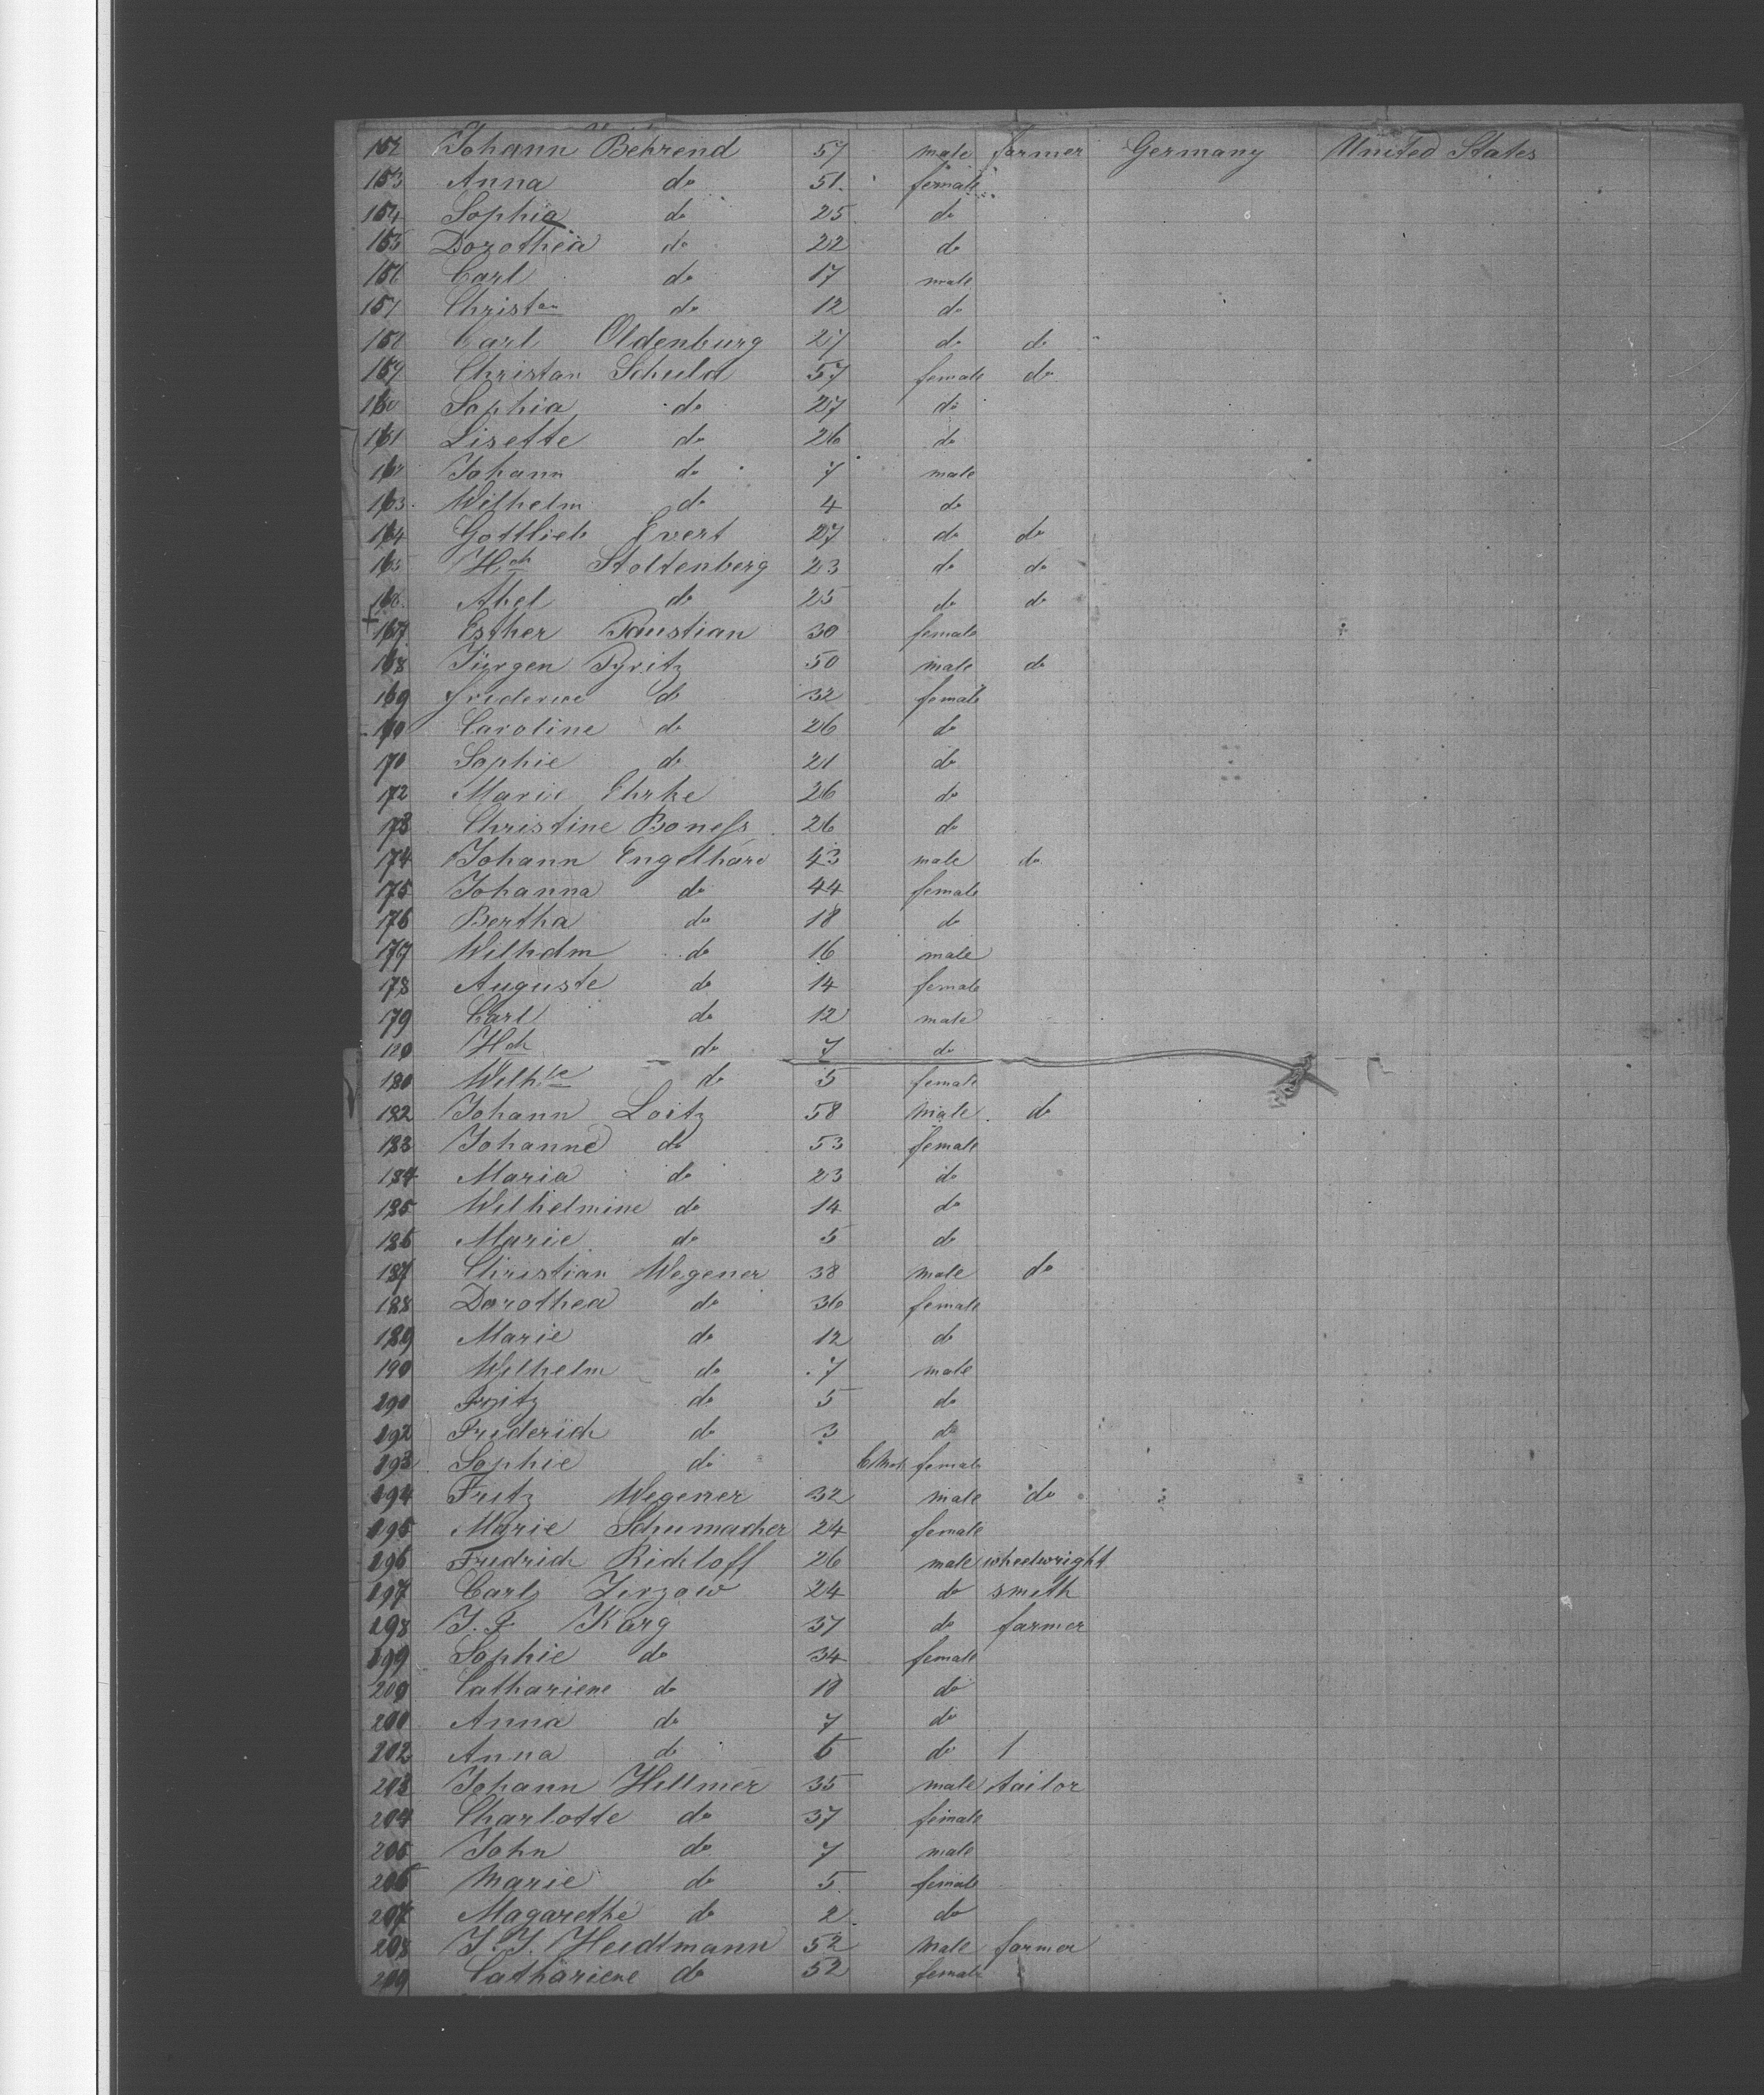 152 Johann Behrend 57 male farmer Germany United States
153 Anna do 51 female
154 Sophia do 25 do
155 Dorothea do 22 do
156 Carl do 17 male
157 Christan do 12 do
158 Carl Oldenburg 27 do do
159 Christan Schuld 57 female do
160 Sophia do 27 do
161 Lisette do 26 do
162 Johann do 7 male
163 Wilhelm do 4 do
164 Gottlieb Evert 27 do do
165 Hch Stoltenberg 23 do do
166 Abel do 25 do do
167 Esther Paustian 30 female
168 Jürgen Pyritz 50 male do
169 do 32 female
170 Caroline do 26 do
170 Sophie do 21 do
172 Marie Ehrke 26 do
173 Christine Boneſs 26 do
174 Johann Engelhard 43 male do
175 Johanna do 44 female
176 Bertha do 18 do
177 Wilhelm do 16 male
178 Auguste do 14 female
179 Carl do 12 male
180 Hch do 7 do
180 Wilhle do 5 female
182 Johann Loitz 58 male do
183 Johanne do 53 female
184 Maria do 23 do
185 Wilhelmine do 14 do
186 Marie do 5 do
187 Christian Wegener 38 male do
188 Dorothea do 36 female
189 Marie do 12 do
190 Wilhelm do 7 male
190 Fritz do 5 do
192 Friderich do 3 do
193 Sophie do female
194 Fritz Wegener 32 male do
195 Marie Schumacher 24 female
196 Fredrich Richloff 26 male wheelwright
197 24 do smith
198 J. F Karg 37 do farmer
199 Sophie do 34 female
200 Cathariene do 10 do
200 Anna do 7 do
202 Anna do 6 do
203 Johann Hillmer 35 male tailor
204 Charlotte do 37 female
205 John do 7 male
206 Marie do 5 female
207 Magarethe do 2 do
208 J. J. Heidtmann 52 male farmer
209 Cathariene do 52 female